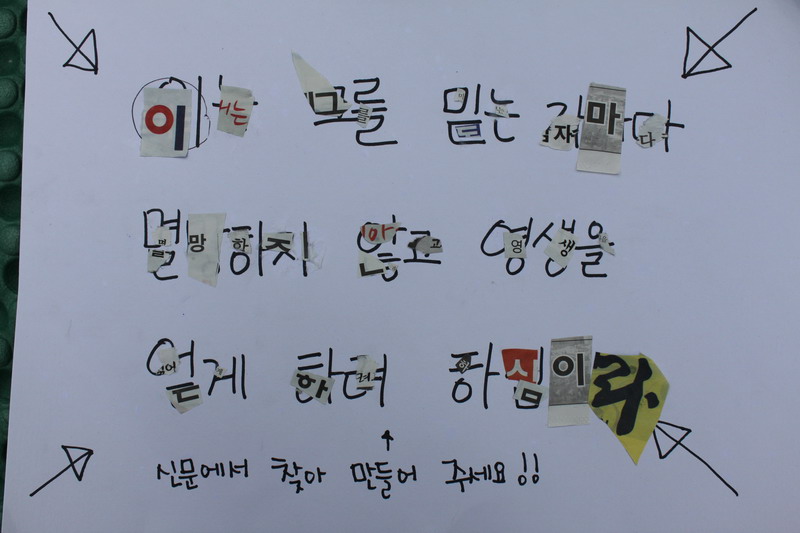 이는 그를 믿는 자마다
멸망하지 않고 영생을
얻게 하려 하심이라
신문에서 찾아 만들어 주세요!!